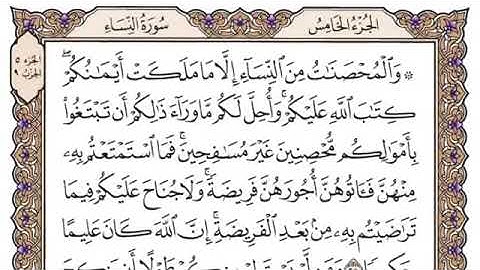 الجُزْءُ الخَامِسُ
سُورَةُ النِّسَاءِ
الجزء ٥
الحزب ٩
۞ وَٱلْمُحْصَنَٰتُ مِنَ ٱلنِّسَآءِ إِلَّا مَا مَلَكَتْ أَيْمَٰنُكُمْ ۖ
كِتَٰبَ ٱللَّهِ عَلَيْكُمْ ۚ وَأُحِلَّ لَكُم مَّا وَرَآءَ ذَٰلِكُمْ أَن تَبْتَغُوا۟
بِأَمْوَٰلِكُم مُّحْصِنِينَ غَيْرَ مُسَٰفِحِينَ ۚ فَمَا ٱسْتَمْتَعْتُم بِهِۦ
مِنْهُنَّ فَـَٔاتُوهُنَّ أُجُورَهُنَّ فَرِيضَةً ۚ وَلَا جُنَاحَ عَلَيْكُمْ فِيمَا
تَرَٰضَيْتُم بِهِۦ مِنۢ بَعْدِ ٱلْفَرِيضَةِ ۚ إِنَّ ٱللَّهَ كَانَ عَلِيمًا